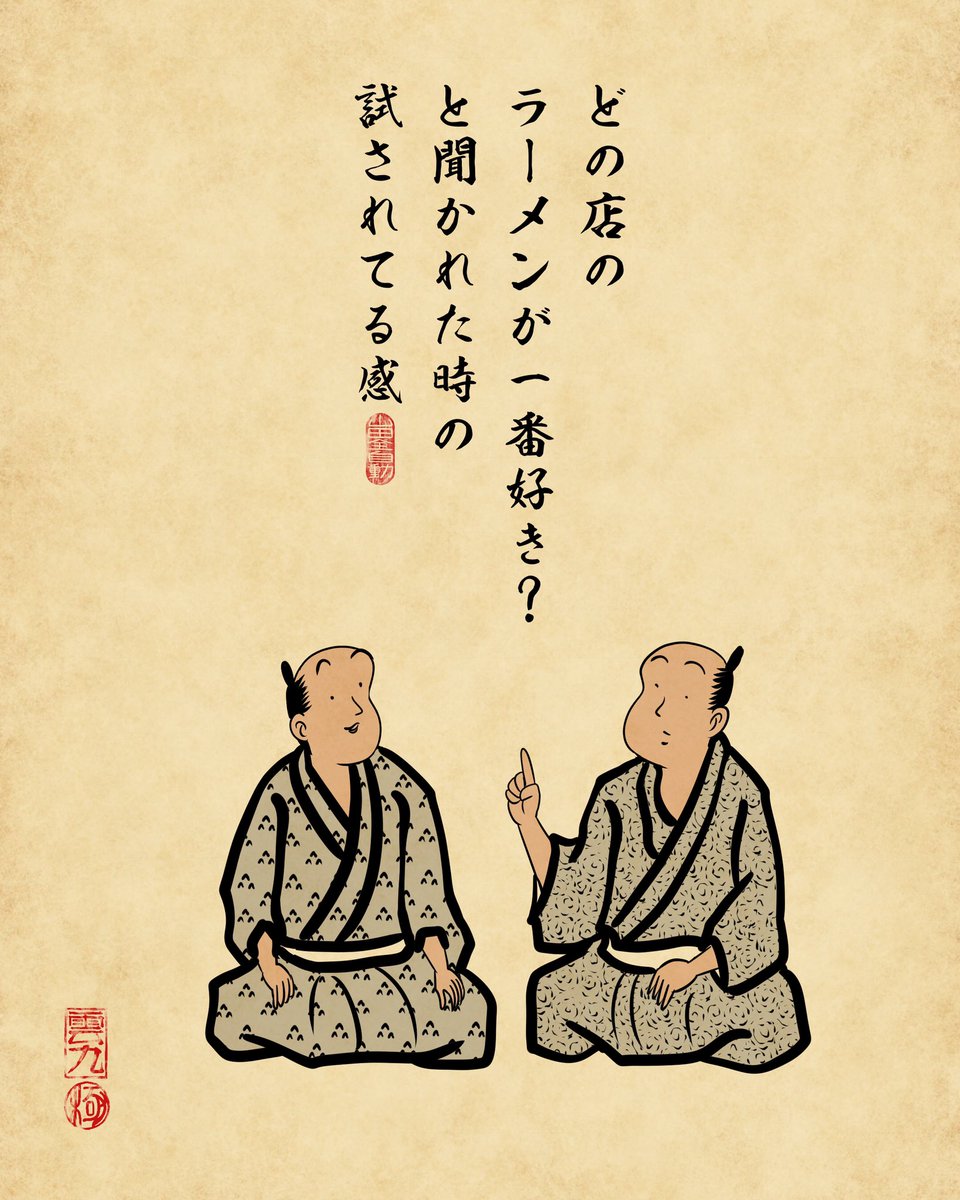 どの店の
ラーメンが一番好き?
と聞かれた時の
試されてる感